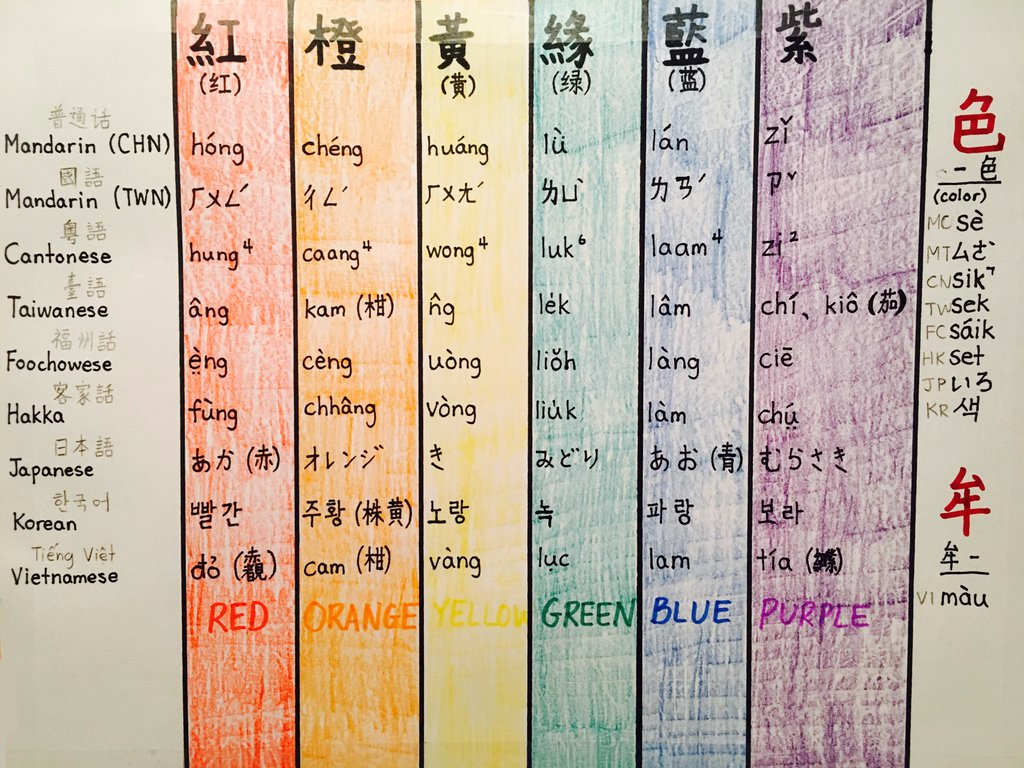 紅 橙 黃 緣 藍 紫
(红) (黄) (绿) (蓝)
普通话
Mandarin (CHN) hóng chéng huáng lǜ lán zǐ
國語
Mandarin (TWN) ㄏㄨㄥˊ ㄔㄥˊ ㄏㄨㄤˊ ㄌㄩˋ ㄌㄢˊ ㄗˇ
粵語
Cantonese hung⁴ caang⁴ wong⁴ luk⁶ laam⁴ zi²
臺語
Taiwanese âng kam (柑) n̂g le̍k lâm chí、kiô (茄)
福州話
Foochowese è̤ng cèng uòng liŏh làng ciē
客家話
Hakka fùng chhâng vòng liu̍k làm chṳ́
日本語
Japanese あか (赤) オレンジ き みどり あお (青) むらさき
한국어
Korean 빨간 주황 (株黄) 노랑 녹 파랑 보라
Tiếng Việt
Vietnamese đỏ cam (柑) vàng lục lam tía
RED ORANGE YELLOW GREEN BLUE PURPLE
色
一色
(color)
MC sè
MT ㄙㄜˋ
CN sik⁷
TW sek
FC sáik
HK set
JP いろ
KR 색
牟
牟一
VI màu